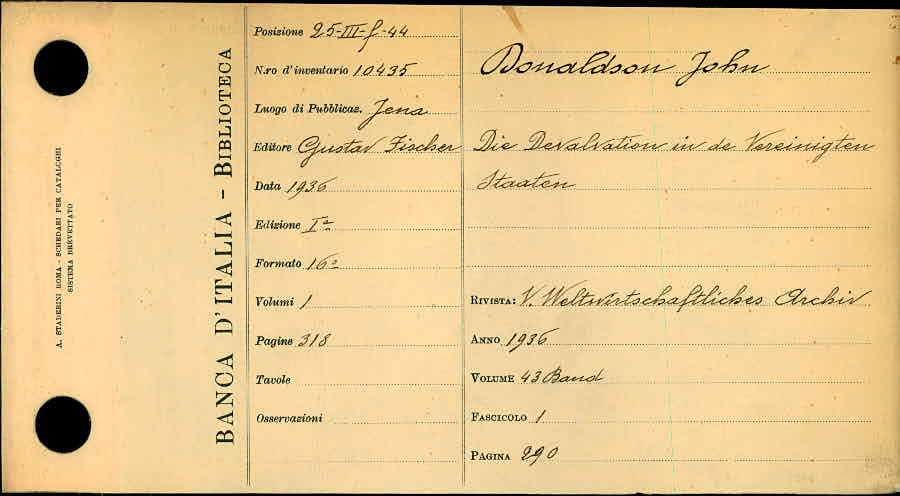 A. STADERINI ROMA - SCHEDARI PER CATALOGHI
SISTEMA BREVETTATO
BANCA D'ITALIA - BIBLIOTECA
Posizione 25-III-f-44
N.ro d'inventario 10435
Luogo di Pubblicaz. Jena
Editore Gustav Fischer
Data 1936
Edizione Iª
Formato 16º
Volumi 1
Pagine 318
Tavole
Osservazioni
Donaldson John
Die Devalvation in de Vereinigten
Staaten
RIVISTA: V. Weltwirtschaftliches Archiv
ANNO 1936
VOLUME 43 Band
FASCICOLO 1
PAGINA 290